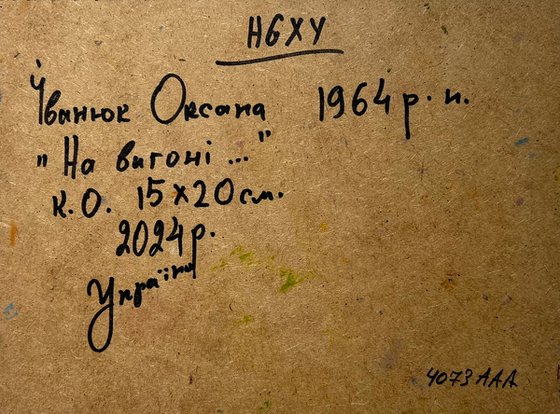 НБХУ
Іванюк Оксана 1964 р. н.
"На вигоні ..."
к. О. 15х20 см.
2024 р.
Україна
4073 ААА